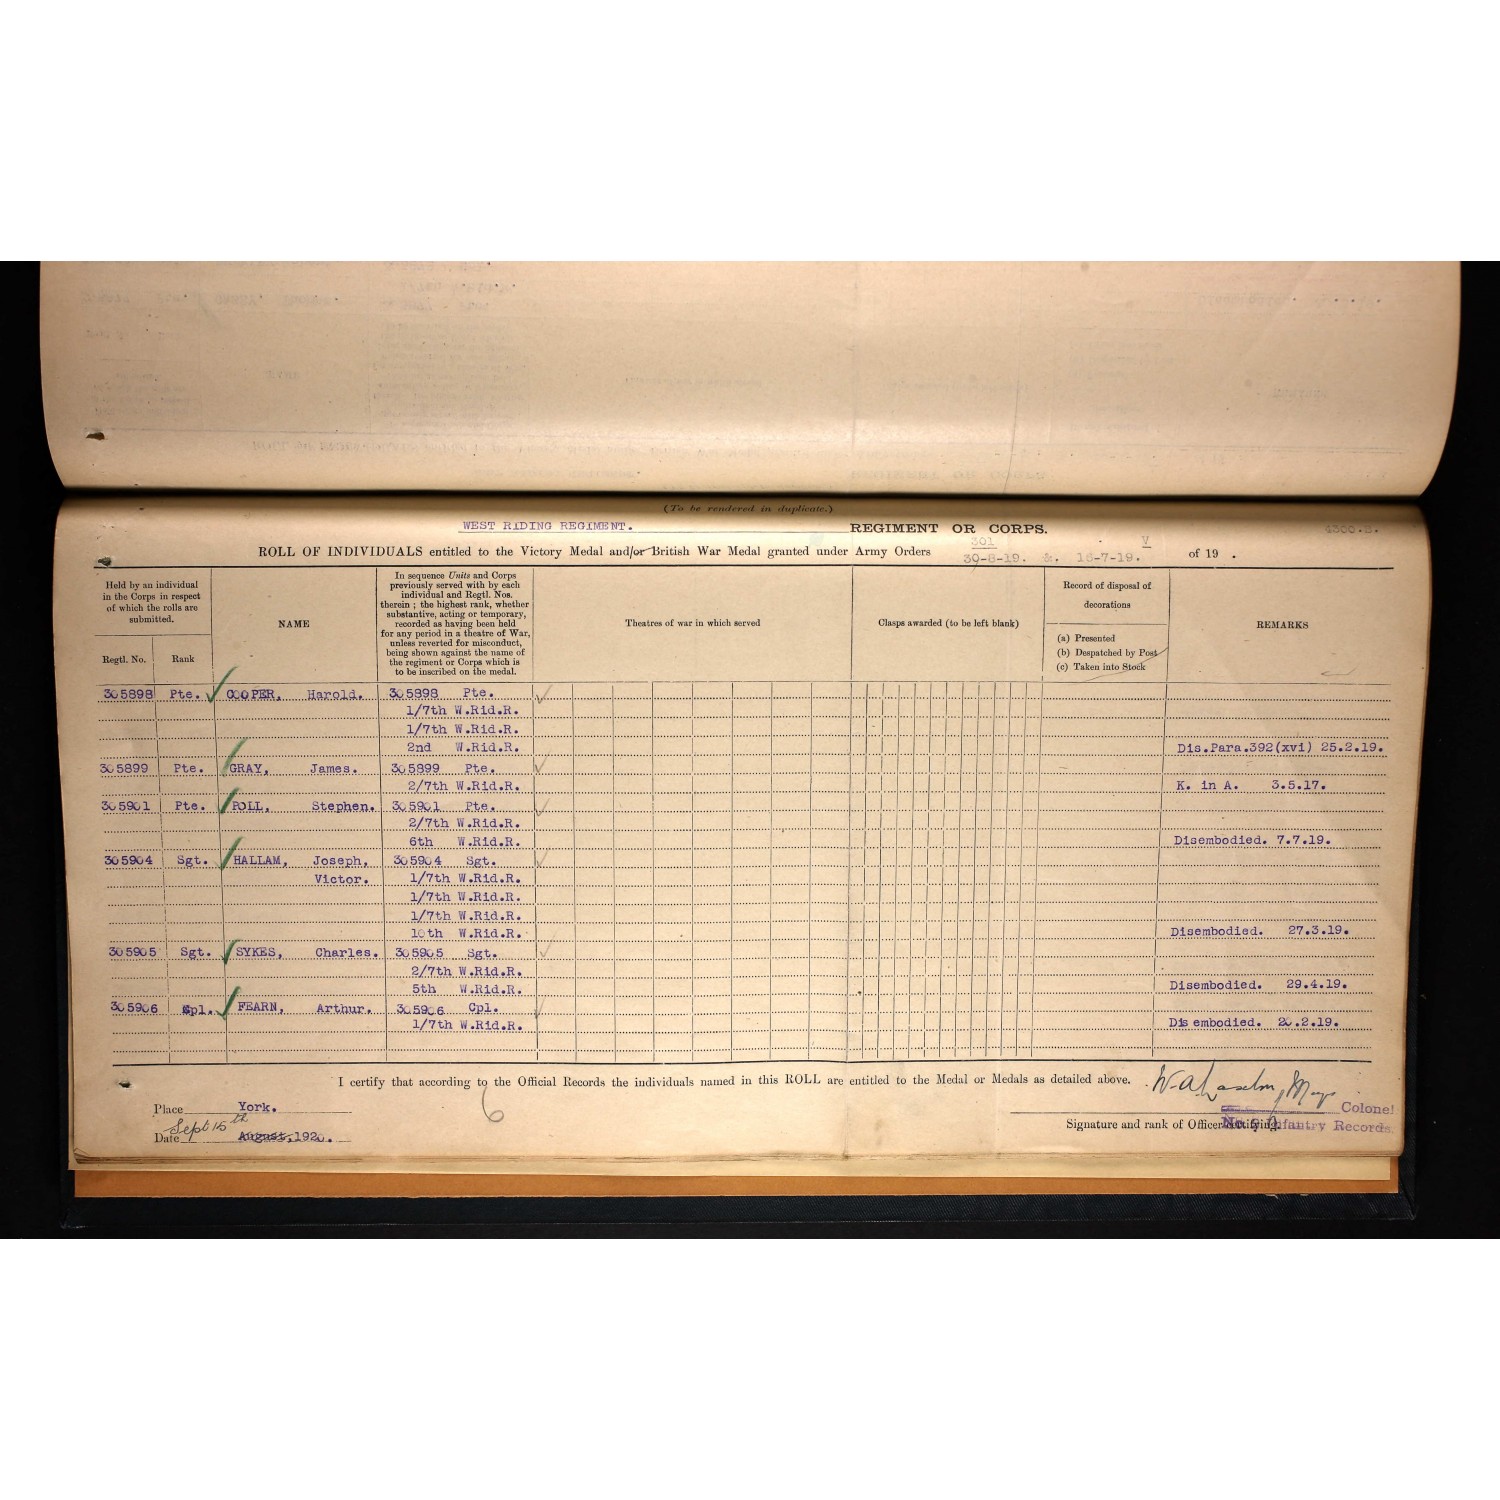 (To be rendered in duplicate.)
WEST RIDING REGIMENT. REGIMENT OR CORPS. 4300.B.
ROLL OF INDIVIDUALS entitled to the Victory Medal and/or British War Medal granted under Army Orders 301 30-8-19. &. V 16-7-19. of 19 .
Held by an individual
in the Corps in respect
of which the rolls are
submitted.
Regtl. No. Rank
NAME
In sequence Units and Corps
previously served with by each
individual and Regtl. Nos.
therein ; the highest rank, whether
substantive, acting or temporary,
recorded as having been held
for any period in a theatre of War,
unless reverted for misconduct,
being shown against the name of
the regiment or Corps which is
to be inscribed on the medal.
Theatres of war in which served
Clasps awarded (to be left blank)
Record of disposal of
decorations
(a) Presented
(b) Despatched by Post
(c) Taken into Stock
REMARKS
305898 Pte. COOPER, Harold. 305898 Pte.
1/7th W.Rid.R.
1/7th W.Rid.R.
2nd W.Rid.R. Dis.Para.392(xvi) 25.2.19.
305899 Pte. GRAY, James. 305899 Pte.
2/7th W.Rid.R. K. in A. 3.5.17.
305901 Pte. ROLL, Stephen. 305901 Pte.
2/7th W.Rid.R.
6th W.Rid.R. Disembodied. 7.7.19.
305904 Sgt. HALLAM, Joseph, 305904 Sgt.
Victor. 1/7th W.Rid.R.
1/7th W.Rid.R.
1/7th W.Rid.R.
10th W.Rid.R. Disembodied. 27.3.19.
305905 Sgt. SYKES, Charles. 305905 Sgt.
2/7th W.Rid.R.
5th W.Rid.R. Disembodied. 29.4.19.
305906 Cpl. FEARN, Arthur. 305906 Cpl.
1/7th W.Rid.R. Disembodied. 20.2.19.
I certify that according to the Official Records the individuals named in this ROLL are entitled to the Medal or Medals as detailed above.
Place York. 6
Sept 15th
Date August, 1920.
Colonel
Signature and rank of Officer certifying.
No. 2 Infantry Records.